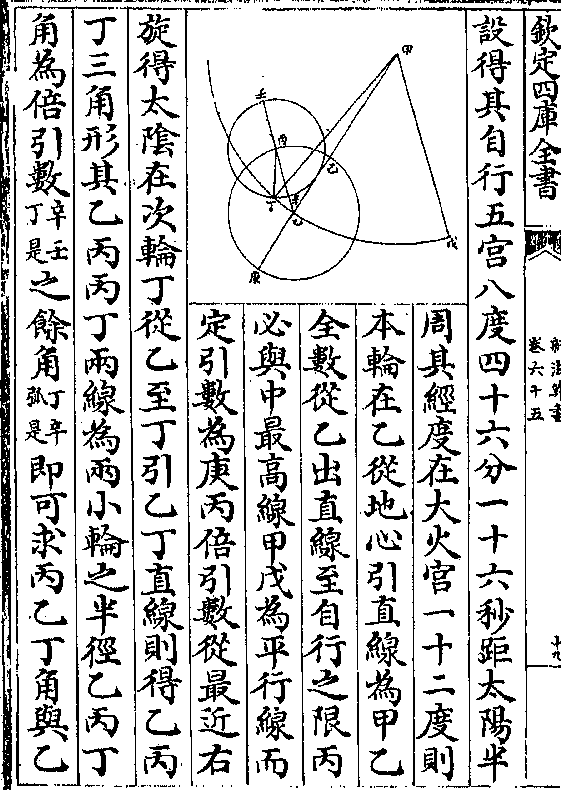 欽定四庫全書
卷六十五
設得其自行五宮八度四十六分一十六秒距太陽半
周其經度在大火宮一十二度則
本輪在乙從地心引直線為甲乙
全數從乙出直線至自行之限丙
必與中最高線甲戊為平行線而
定引數為庚丙倍引數從最近右
旋得太陰在次輪丁從乙至丁引乙丁直線則得乙丙
丁三角形其乙丙丙丁兩線為兩小輪之半徑乙丙丁
角為倍引數辛壬丁是之餘角丁辛弧是即可求丙乙丁角與乙
甲
壬
丙
乙
丁
庚
戊